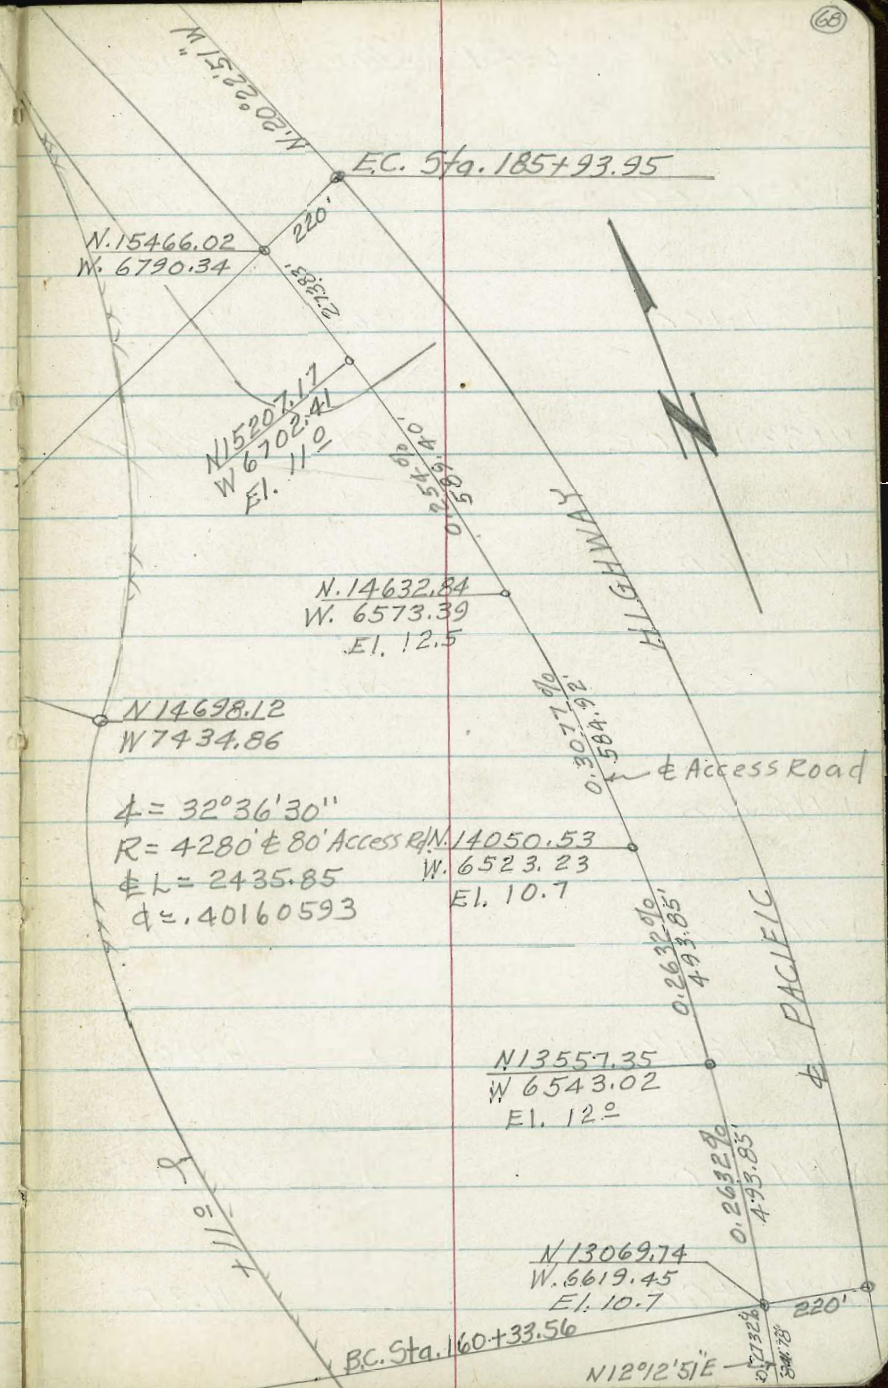 68
N.20°22'51"W
E.C. Sta. 185+93.95
220'
N.15466.02
W. 6790.34
273.83'
N15207.17
W 6702.41
El. 11º
0.254%
589.40'
HIGHWAY
N
N.14632.84
W. 6573.39
El. 12.5
0.3077%
584.92'
N 14698.12
W 7434.86
℄ Access Road
∆= 32°36'30"
R= 4280' ℄ 80' Access Rd
℄ L= 2435.85
d=.40160593
N.14050.53
W. 6523.23
El. 10.7
0.2632%
493.85'
℄ PACIFIC
N13557.35
W 6543.02
El. 12º
0.2632%
493.85'
+11º
N 13069.74
W. 6619.45
El. 10.7
220'
B.C. Sta. 160+33.56
N12°12'51"E